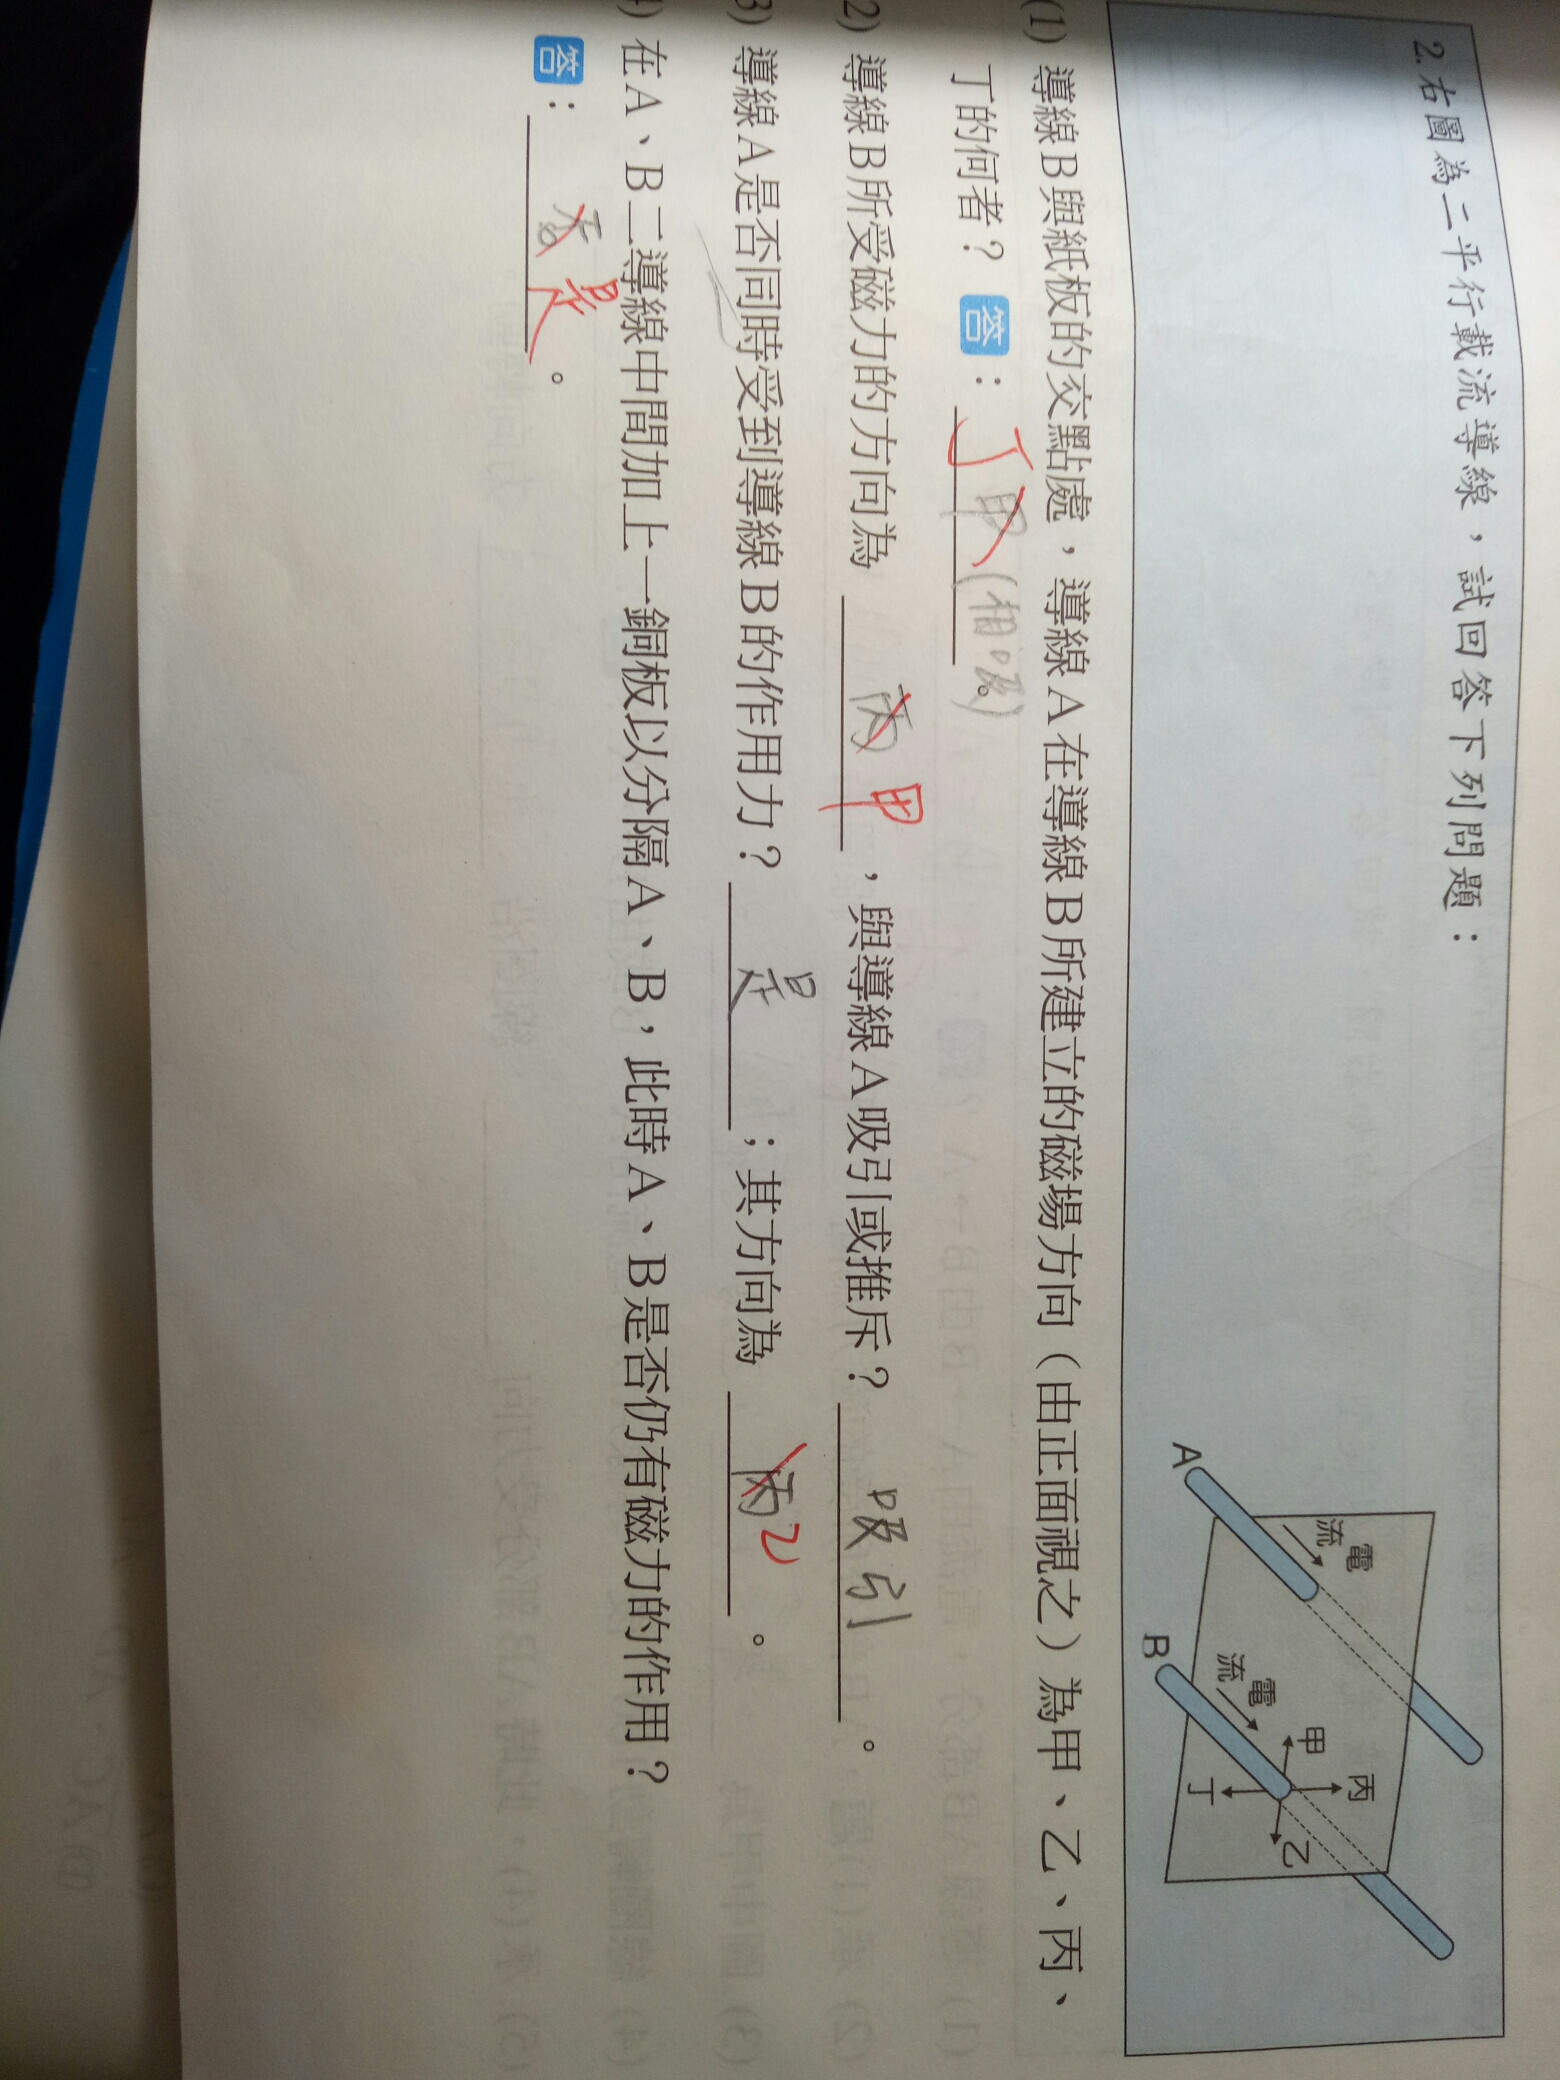 2.右圖為二平行載流導線，試回答下列問題：
電
流
電
流
A
B
甲
乙
丙
丁
(1) 導線B與紙板的交點處，導線A在導線B所建立的磁場方向（由正面視之）為甲、乙、丙、
丁的何者？ 答：丁 甲(相吸)。
2) 導線B所受磁力的方向為 丙 甲 ，與導線A吸引或推斥？ 吸引 。
3) 導線A是否同時受到導線B的作用力？ 是 ；其方向為 丙 乙 。
4) 在A、B二導線中間加上一銅板以分隔A、B，此時A、B是否仍有磁力的作用？
答： 否 是 。